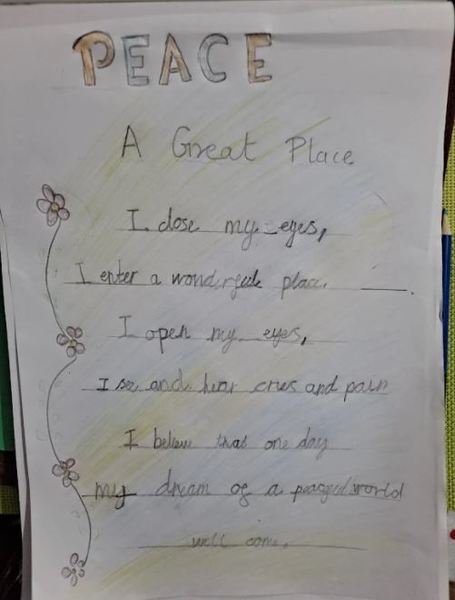 PEACE
A Great Place
I close my eyes,
I enter a wonderful place.
I open my eyes,
I see and hear cries and pain
I believe that one day
my dream of a peaceful world
will come.